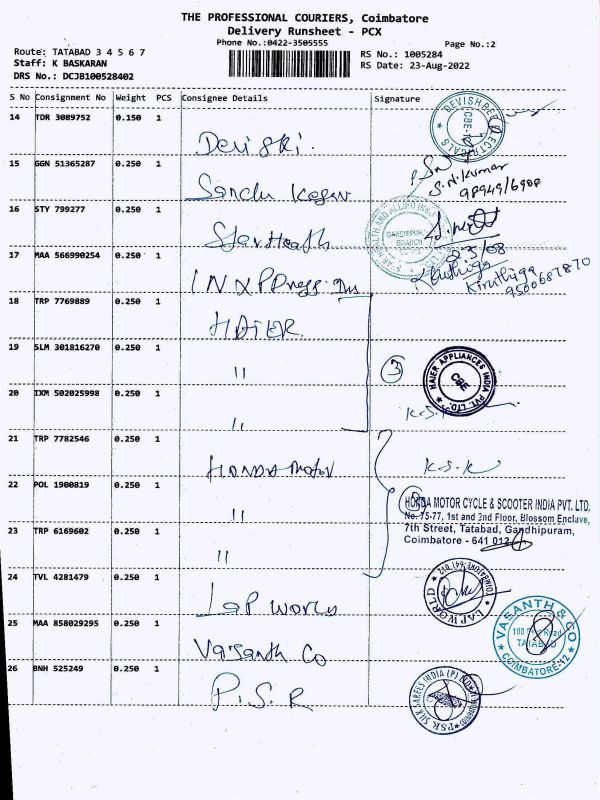 THE PROFESSIONAL COURIERS, Coimbatore
Delivery Runsheet - PCX
Phone No.:0422-3505555
Page No.:2
Route: TATABAD 3 4 5 6 7
Staff: K BASKARAN
DRS No.: DCJB100528402
RS No.: 1005284
RS Date: 23-Aug-2022
S No Consignment No Weight PCS Consignee Details Signature
14 TDR 3089752 0.150 1
DEVISHREE ELECTRICALS
CBE-12
15 GGN 51365287 0.250 1
S.N.Kumar
16 STY 799277 0.250 1
Star Health
GANDHIPURAM
BRANCH
17 MAA 566990254 0.250 1
Kiruthiga
Kiruthiga
9500687870
18 TRP 7769889 0.250 1
HAIER
19 SLM 301816270 0.250 1
"
3
HAIER APPLIANCES INDIA PVT. LTD.
CBE
20 IXM 502025998 0.250 1
"
K.S.K
21 TRP 7782546 0.250 1
HONDA motor
K.S.K
22 POL 1900819 0.250 1
"
HONDA MOTOR CYCLE & SCOOTER INDIA PVT. LTD.
No. 75-77, 1st and 2nd Floor, Blossom Enclave,
7th Street, Tatabad, Gandhipuram,
Coimbatore - 641 012
23 TRP 6169602 0.250 1
"
24 TVL 4281479 0.250 1
Lap World
LAP WORLD
25 MAA 858029295 0.250 1
Vasanth Co
VASANTH & CO
100 Feet Road
TATABAD
COIMBATORE-12
26 BNH 525249 0.250 1
P.S.R
PSR SILK SAREES INDIA (P)